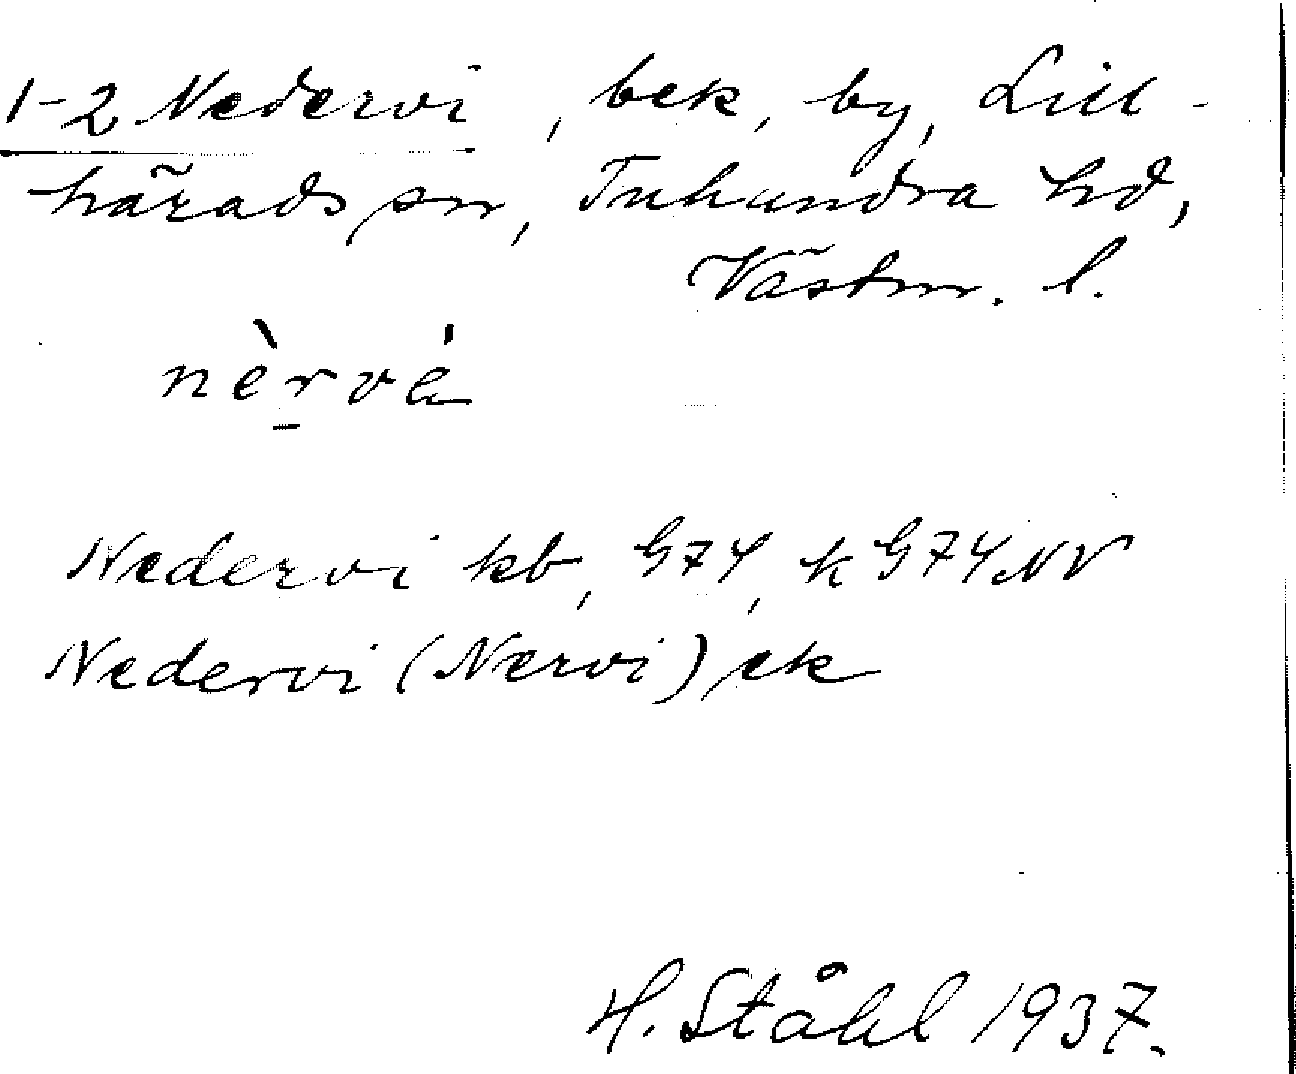 1-2 Nedervi, bek, by, Lill-
härads sn, Tuhundra hd,
Västm. l.
nèrvé
Nedervi kb, G74, k G74NV
Nedervi (Nervi) ek
H. Ståhl 1937.